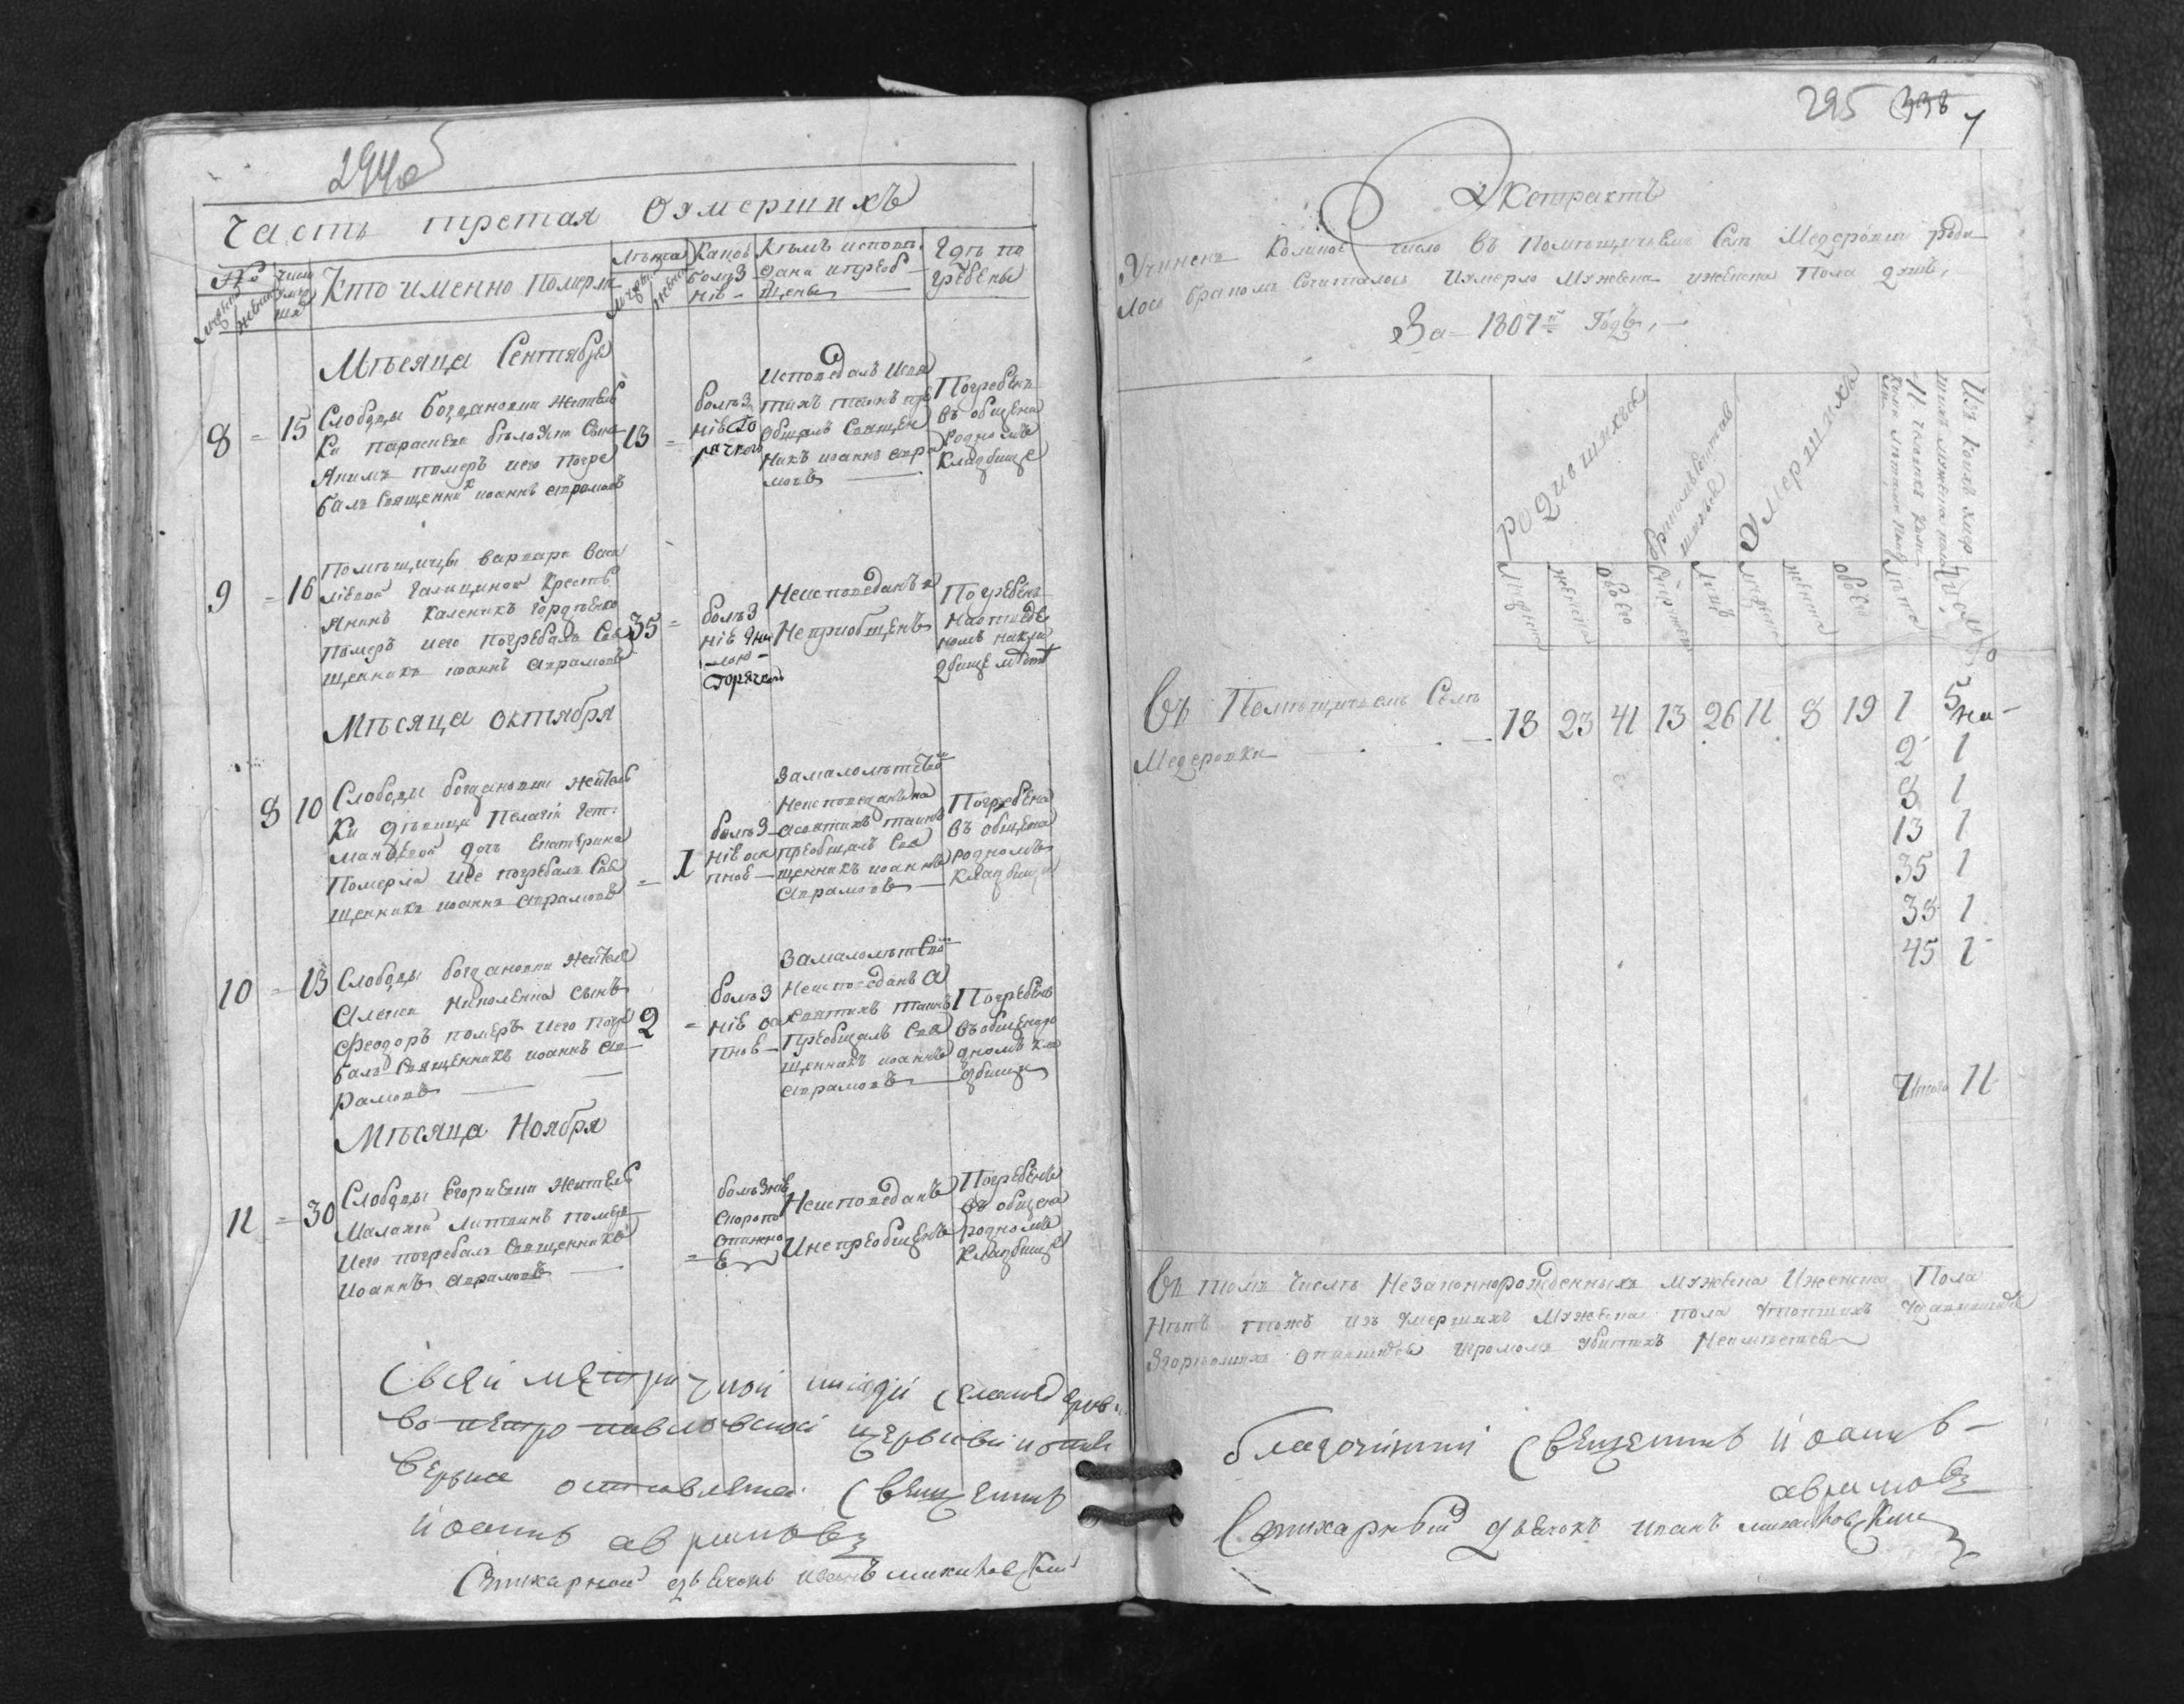 294об
Часть третая О умершихъ
№
Мужеска
Женска
Числ умерш
Кто именно Померъ
Лѣта
Мужеск
Женск
Какою болѣзнію
Кѣмъ исповѣданы и преобщены
Гдѣ погребены
Мѣсяца Сентября
8 = 15 Слободы Богдановки жителъ
ки параскеви бѣло Сынъ 13 =
Якимъ померъ иего погре
балъ Священникъ иоаннъ аврамовъ
болѣз
ніею го
рячкою
Исповедалъ исвя
тихъ таинъ пре
общалъ Священ
никъ иоаннъ авра
мовъ
Погребенъ
въ общена
родномъ
кладбище
9 = 16 Помѣщицы варвари Васи
ліевой Галициной Крестъ
янинъ Каленикъ Гордѣенко
Померъ иего погребалъ Свя 35 =
щеникъ иоаннъ аврамовъ
болѣз
ніе гни
лою
горячкою
Неисповеданъ и
Неприобщенъ
Погребенъ
Мѣсяца октября
8 10 Слободы богдановки жител
ки дѣвици Пелагіи Гет
мановой дочь Екатерина
Померла иее погребалъ Свя
щенникъ иоаннъ аврамовъ = 1
болѣз
ніе ос
пною
Замалолѣтствомъ
Неисповедана
асвятихъ таинъ
преобщалъ Свя
щенникъ иоаннъ
аврамовъ
Погребена
въ общена
родномъ
кладбище
10 = 13 Слободы богдановки жителя
Алексея Николенка сынъ
Феодоръ померъ иего погре 2 =
балъ Священникъ иоаннъ ав
рамовъ
болѣз
ніе ос
пною
Замалолѣтствомъ
Неисповеданъ а
святихъ таинъ
преобщалъ Свя
щенникъ иоаннъ
аврамовъ
Погребенъ
въ общенаро
дномъ кла
дбище
Мѣсяца Ноября
11 = 30 Слободы Егоривки жителъ
Малахій Литвинъ померъ
иего погребалъ Священникъ
Иоаннъ аврамовъ =
болѣзнію
скоропо
стижно
ю
Неисповеданъ
Инепреобщенъ
Погребенъ
въ общена
родномъ
кладбище
Съсей метричной книги села медеровки
во петро павловской церькви копія
верная оставлена Священникъ
иоаннъ аврамовъ
Стихарной дьячокъ иванъ миниковский
295 338
Экстрактъ
Учиненъ Коликое число въ Помѣщичъемъ Селѣ Медеровки роди
лось бракомъ Сочиталось Иумерло Мужеска иженска Пола душъ,
За 1807й Годъ,
родившихся
бракомъ сочетавшихся
Умершихъ
Изъ коихъ умер
шихъ мужеска пола
11 человекъ
Мужеска
женска
обоего
Лицъ
мужеска
женска
обоего
Лѣта
Число
Въ Помѣщичъемъ Селѣ
Медеровки 18 23 41 13 26 11 8 19 1 5
2 1
8 1
13 1
35 1
38 1
45 1
Итого 11
Въ томъ числѣ Незаконнорожденныхъ мужеска Иженска Пола
Нѣтъ тожъ изъ умершихъ Мужеска пола утопшихъ удавившихся
Згорѣвшихъ опившихся игромомъ убитихъ Неимѣется
благочинний Священникъ иоаннъ
аврамовъ
Стихарный дьячокъ иванъ миниковский